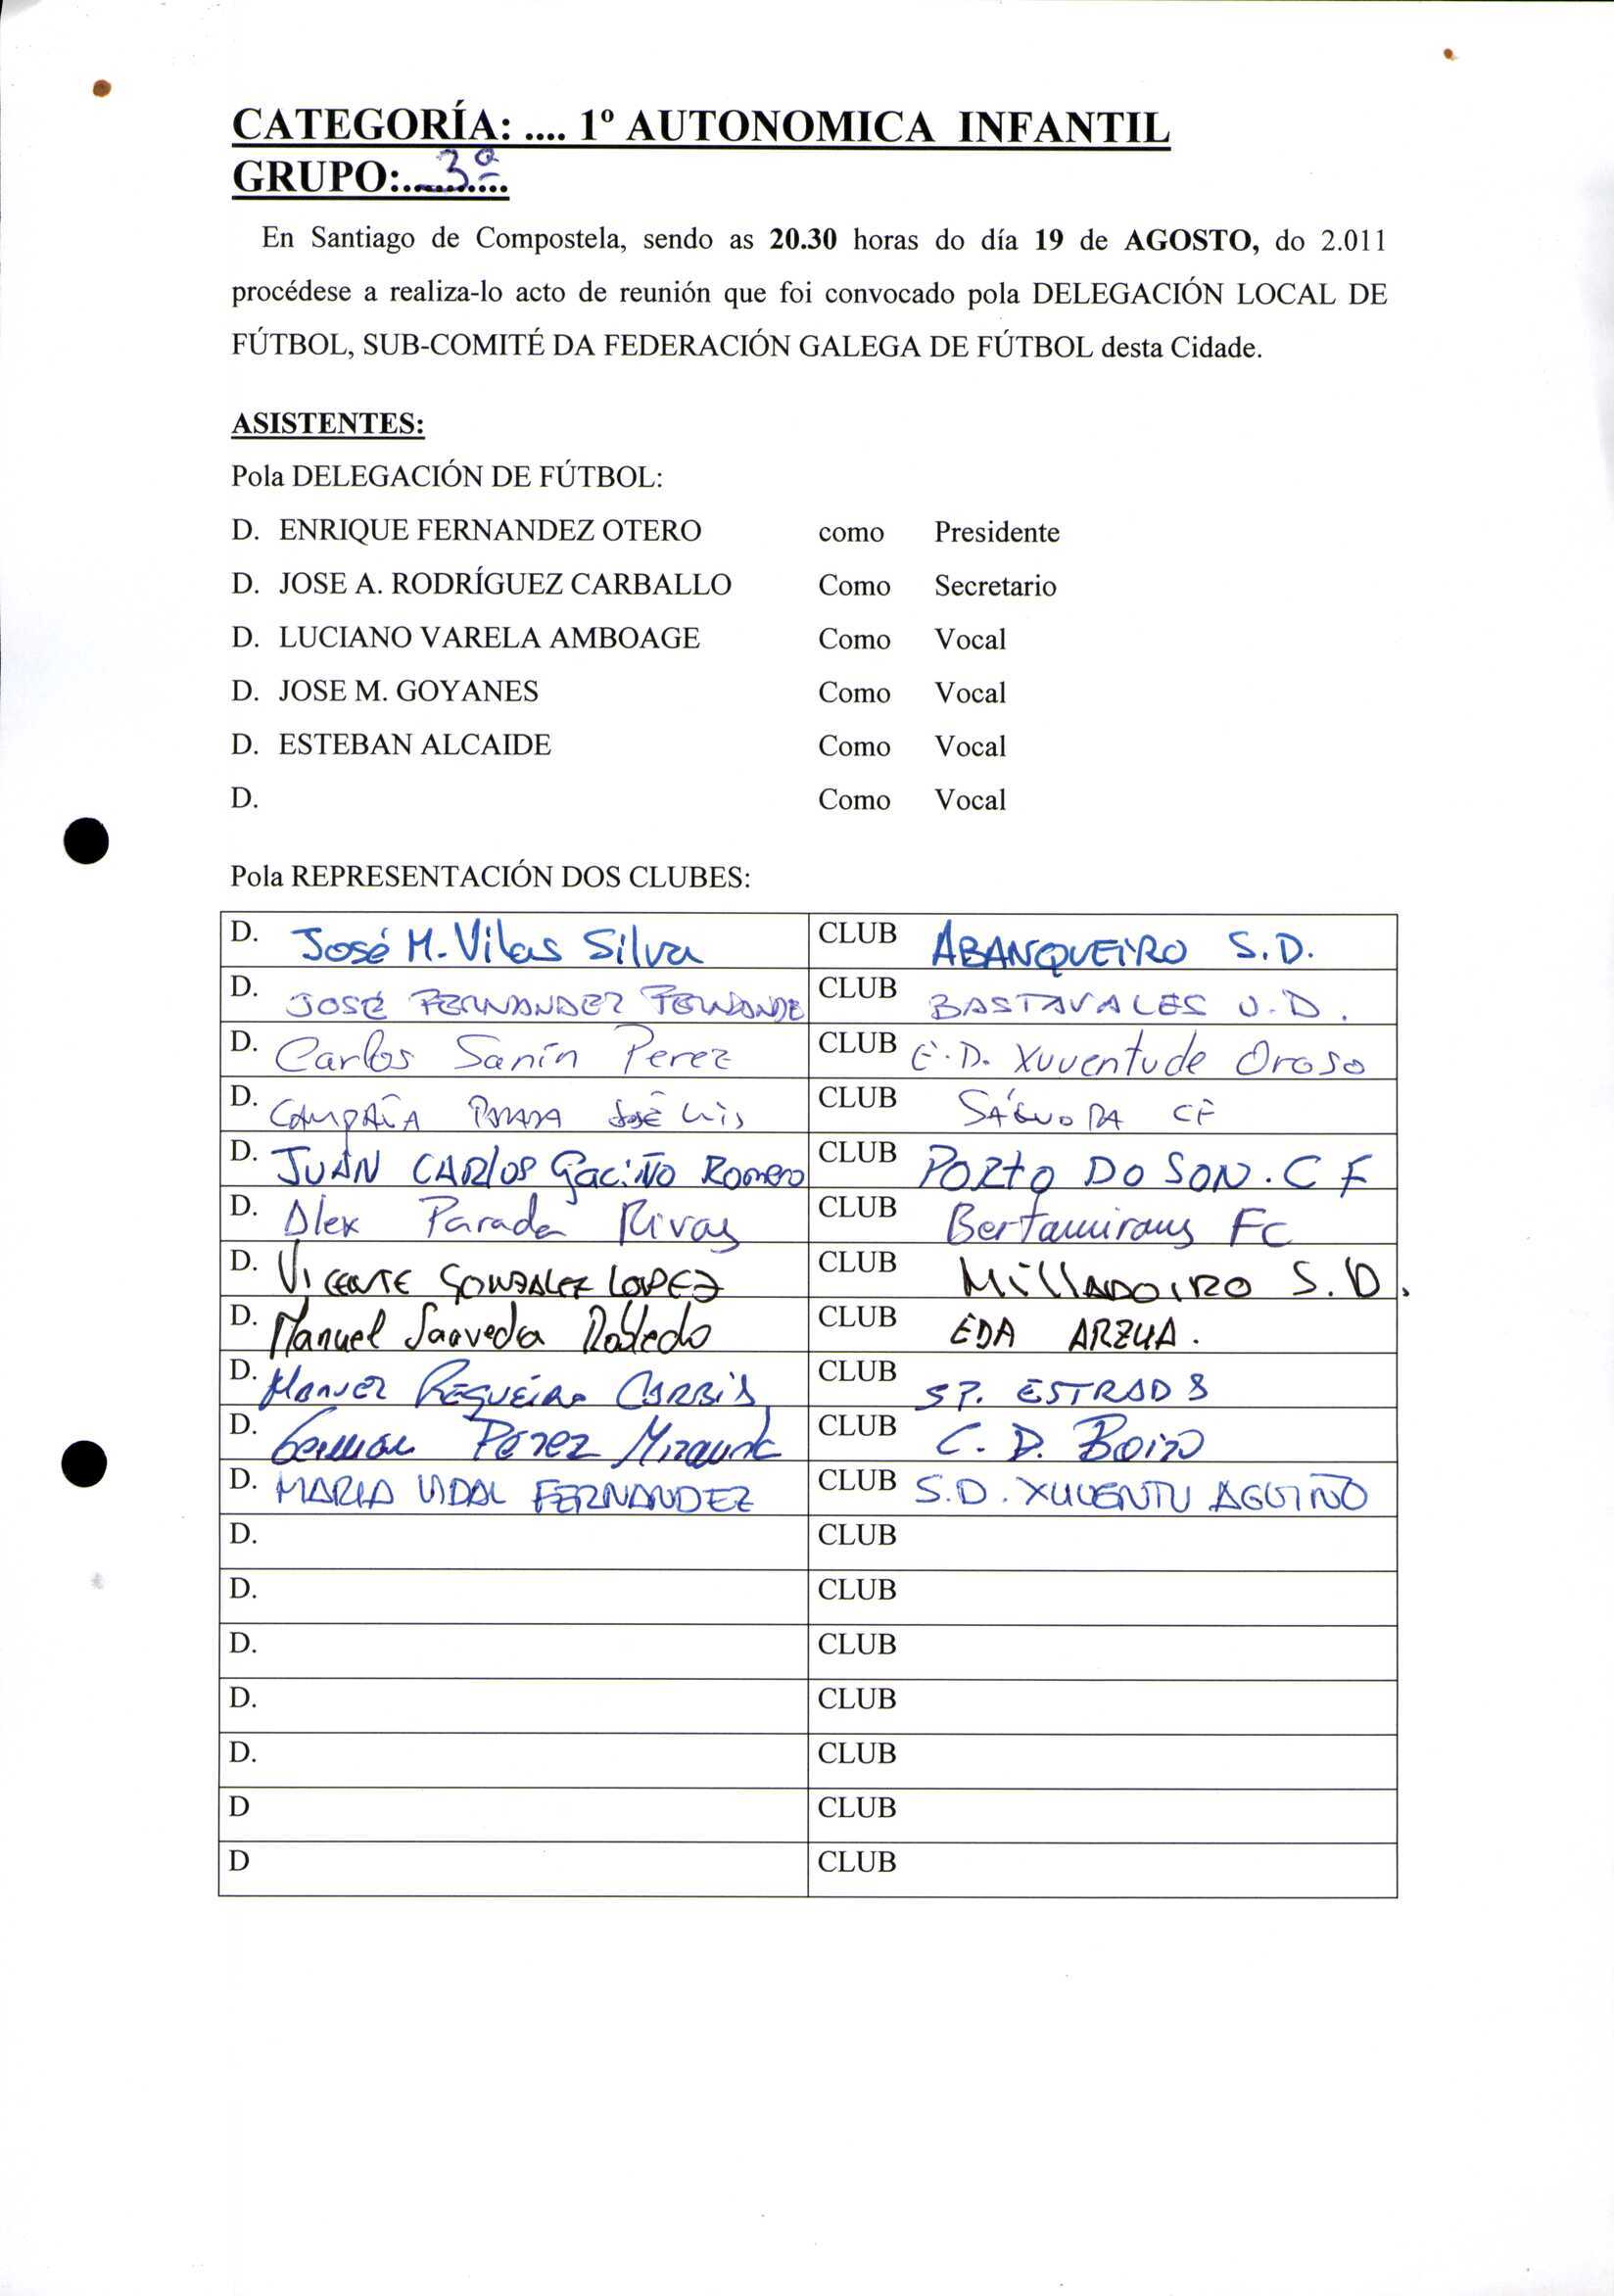 CATEGORÍA: .... 1º AUTONOMICA INFANTIL
GRUPO:....3º....
En Santiago de Compostela, sendo as 20.30 horas do día 19 de AGOSTO, do 2.011
procédese a realiza-lo acto de reunión que foi convocado pola DELEGACIÓN LOCAL DE
FÚTBOL, SUB-COMITÉ DA FEDERACIÓN GALEGA DE FÚTBOL desta Cidade.
ASISTENTES:
Pola DELEGACIÓN DE FÚTBOL:
D. ENRIQUE FERNANDEZ OTERO como Presidente
D. JOSE A. RODRÍGUEZ CARBALLO Como Secretario
D. LUCIANO VARELA AMBOAGE Como Vocal
D. JOSE M. GOYANES Como Vocal
D. ESTEBAN ALCAIDE Como Vocal
D. Como Vocal
Pola REPRESENTACIÓN DOS CLUBES:
D. José M. Vilas Silva CLUB ABANQUEIRO S.D.
D. JOSÉ FERNANDEZ CLUB BASTAVALES U.D.
D. Carlos Sanín Perez CLUB E.D. Xuventude Oroso
D. CAMPAÑA José Luis CLUB CF
D. JUAN CARLOS Gaciño Romero CLUB PORTO DO SON. C F
D. Alex Parada Rivas CLUB Bertamirans FC
D. VICENTE GONZALEZ LOPEZ CLUB MILLADOIRO S.D.
D. Manuel Saavedra Robledo CLUB EDA ARZUA.
D. MANUEL REGUEIRO CLUB SP. ESTRADA
D. German PEREZ Miranda CLUB C. D. BOIRO
D. MARIA VIDAL FERNANDEZ CLUB S.D. XUVENTU AGUIÑO
D. CLUB
D. CLUB
D. CLUB
D. CLUB
D. CLUB
D CLUB
D CLUB